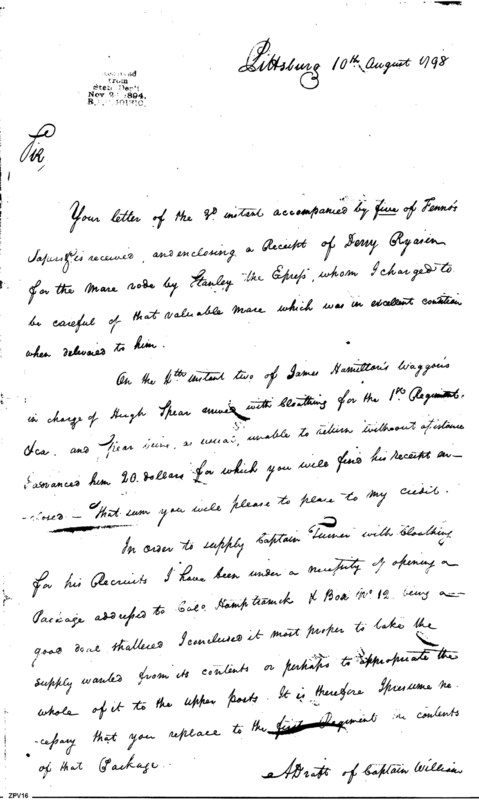 Pittsburg 10th August 1798
Received
from
Nov 2 1894.
Sir,
Your letter of the 3d instant accompanied by five of Fenno's
is received, and enclosing a Receipt of Derry Ryason
for the mare rode by Stanley the Express, whom I charged to
be careful of that valuable mare which was in excellent condition
when delivered to him.
On the instant two of James Hamilton's Waggons
in charge of Hugh Spear arrived with Cloathing for the 1st Regiment.
&ca. and Spear being, as usual, unable to return without assistance
I advanced him 20 dollars for which you will find his receipt en-
-closed - that sum you will please to place to my credit.
In order to supply Captain Turner with Cloathing
for his Recruits I have been under a necessity of opening a
Package addressed to Colo. Hamptramck & Box No 12 being a
good deal shattered I concluded it most proper to take the
supply wanted from its contents or perhaps to appropriate the
whole of it to the upper posts. It is therefore I presume ne-
-cessary that you replace to the first Regiment the contents
of that Package.
A Draft of Captain William
ZPV16